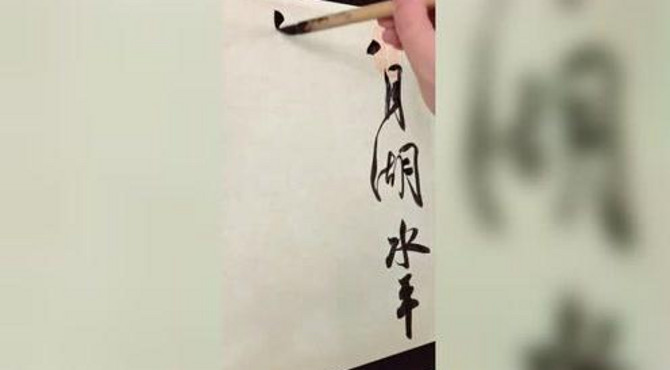 月湖水平